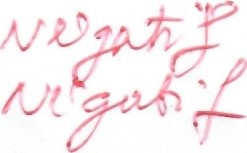 Négatif
Négatif